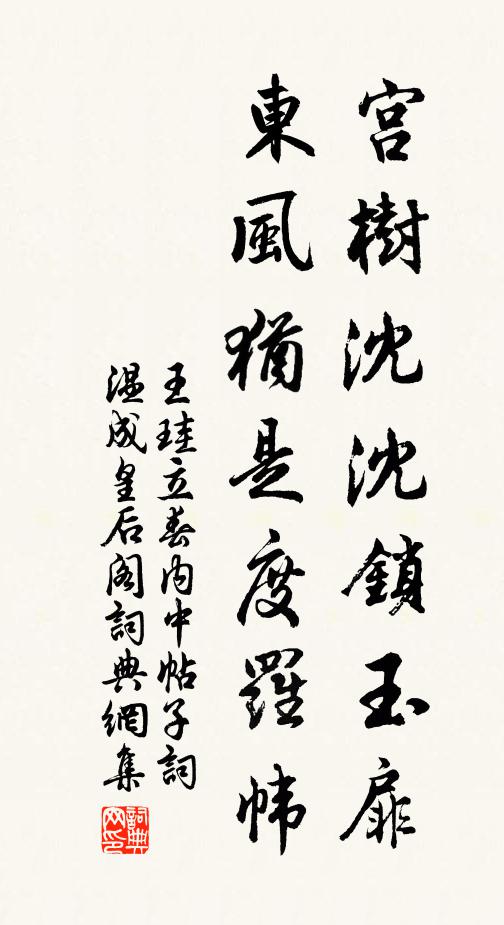 宮樹沈沈鎖玉扉
東風猶是度羅幃
王珪立春內中帖子詞
溫成皇后阁詞典網集
詞典網印